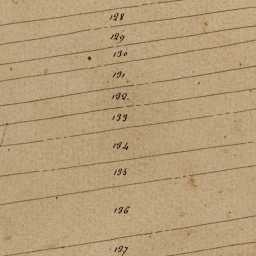 128
129
130
131
132
133
134
135
136
137